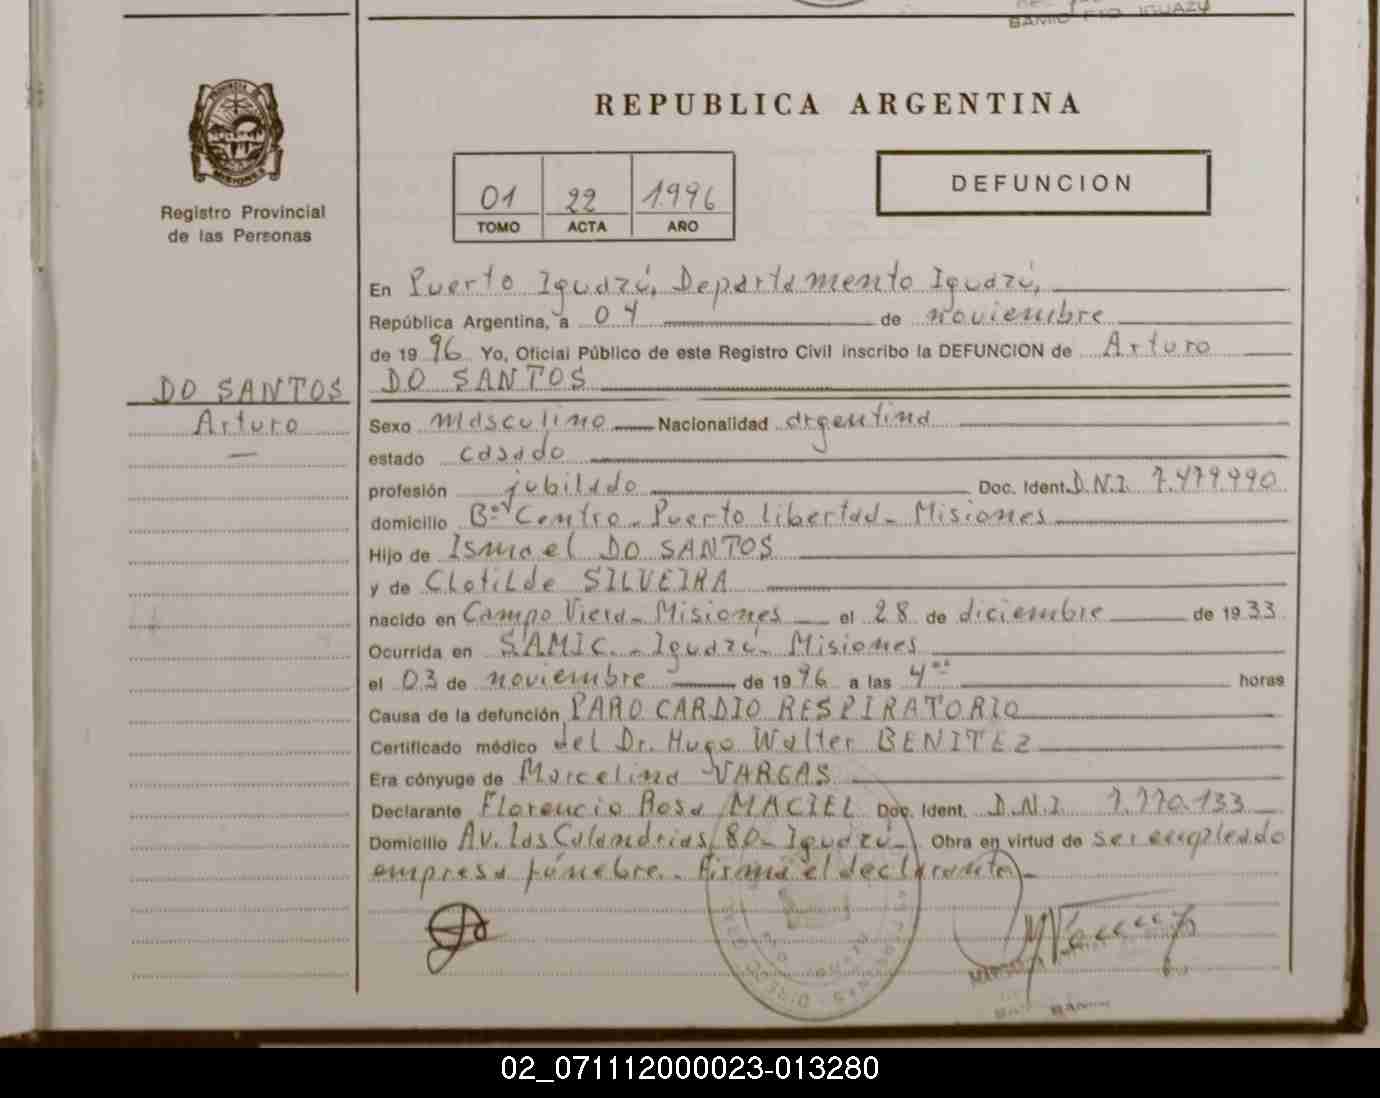 SAMIC PTO IGUAZU
PROVINCIA DE
MISIONES
Registro Provincial
de las Personas
REPUBLICA ARGENTINA
01 22 1996
TOMO ACTA AÑO
DEFUNCION
En Puerto Iguazú, Departamento Iguazú,
República Argentina, a 04 de noviembre
de 1996 Yo, Oficial Público de este Registro Civil inscribo la DEFUNCION de Arturo
DO SANTOS
DO SANTOS
Arturo
Sexo masculino Nacionalidad argentina
estado casado
profesión jubilado Doc. Ident. D.N.I. 7.479.990
domicilio Bº Centro - Puerto Libertad - Misiones
Hijo de Ismael DO SANTOS
y de Clotilde SILVEIRA
nacido en Campo Viera - Misiones el 28 de diciembre de 1933
Ocurrida en SAMIC. - Iguazú - Misiones
el 03 de noviembre de 1996 a las 4 horas
Causa de la defunción PARO CARDIO RESPIRATORIO
Certificado médico del Dr. Hugo Walter BENITEZ
Era cónyuge de Marcelina VARGAS
Declarante Florencio Rosa MACIEL Doc. Ident. D.N.I. 7.770.133
Domicilio Av. Las Calandrias 80 - Iguazú - Obra en virtud de ser empleado
empresa fúnebre. - Firma el declarante -
02_071112000023-013280